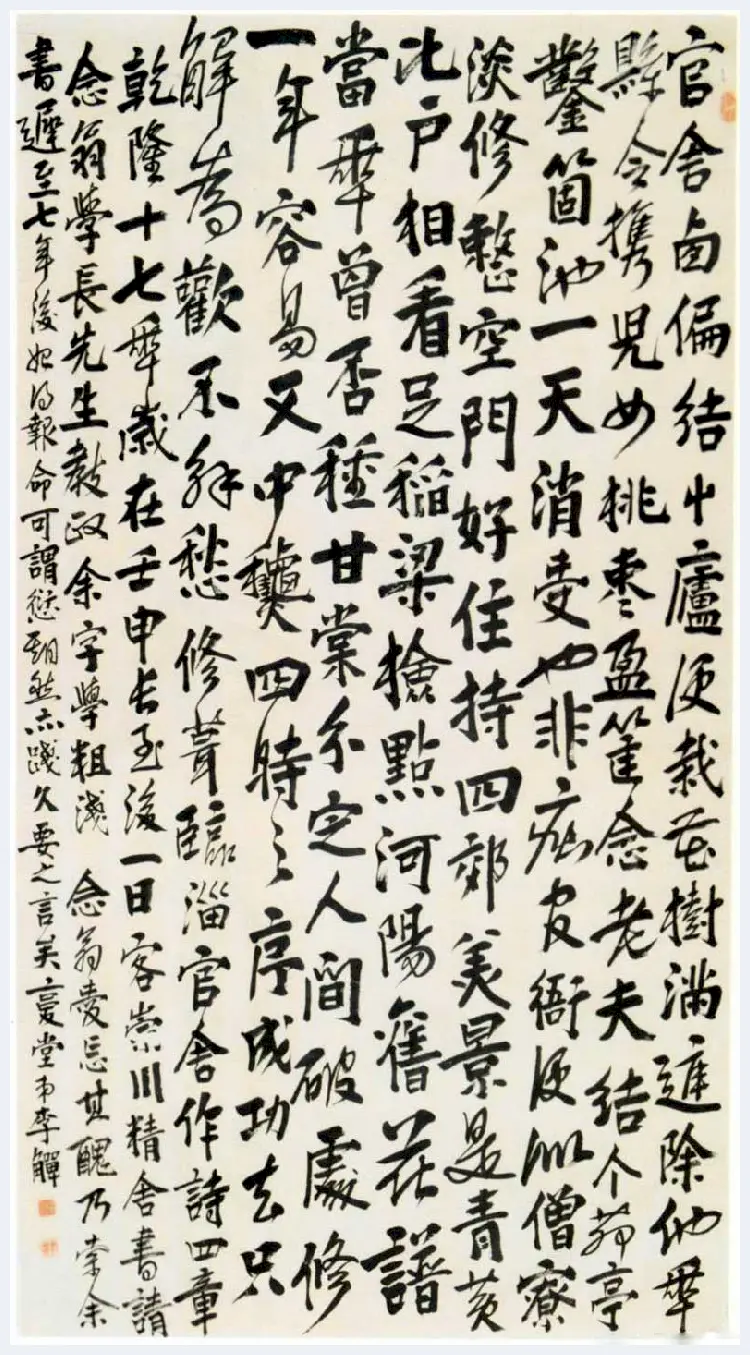 官舍西偏結艸廬便栽花樹滿庭除他年
縣令携兒女桃棗盈筐念老夫結个茆亭
鑿箇池一天消受也非官衙便似僧寮
淡修整空門好住持四郊美景是青黄
比户相看足稻粱檢點河陽舊花譜
當年曾否種甘棠尔定人間破處修
一年容易又中龝四時之序成功去只
解為歡不解愁修葺臨淄官舍作詩四章
乾隆十七年歲在壬申長至後一日客崇川精舍書請
念翁學長先生教政余字學粗淺 念翁愛忘其醜乃索余
書遲至七年後始得報命可謂愆期然亦踐久要之言矣堂弟李鱓